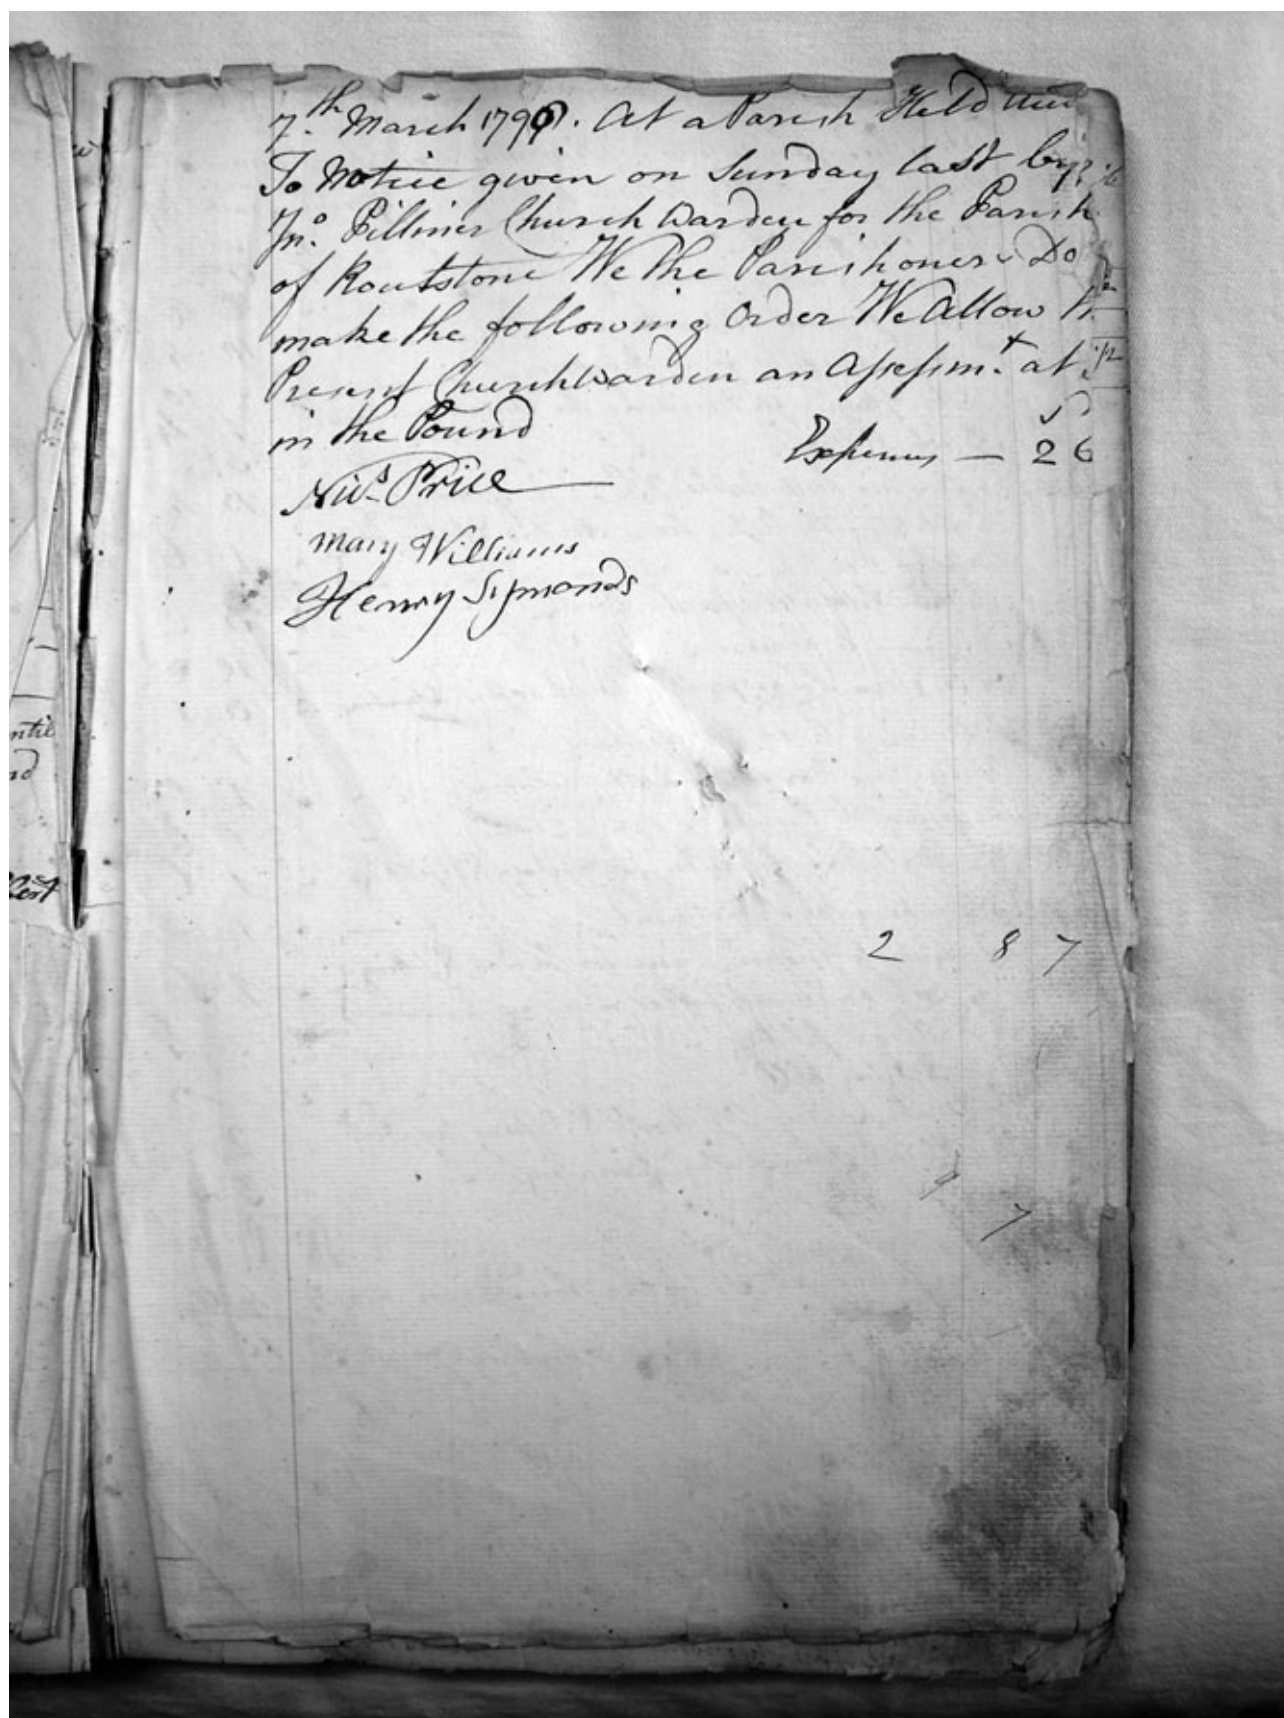 7.th March 1796. At a Parish Held
To Notice given on Sunday last by
Jno. Pilliner Church Warden for the Parish
of Roulstone We the Parishoners Do
make the following Order We Allow
Present Churchwarden an Assessmt. at
in the Pound
Expences — 2 6
Nics. Price
Mary Williams
Henry Symonds
2 8 7
7